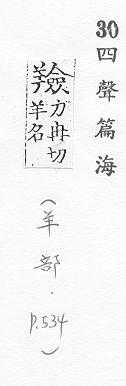 30
四聲篇海
羷
力冉切
羊名
(羊部.p.534)